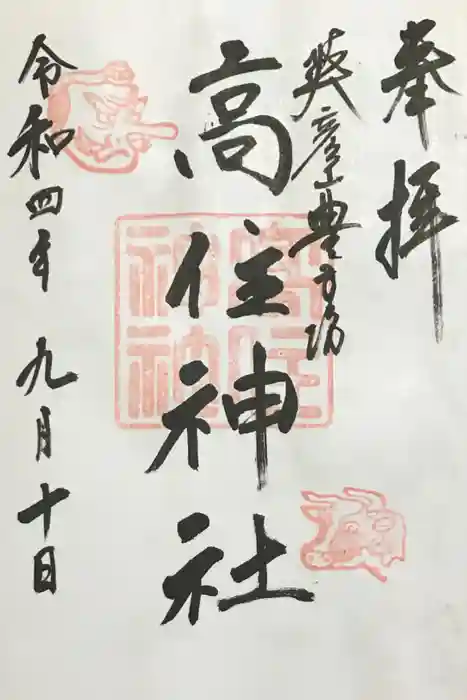 奉拝
英彦山豊前坊
高住神社
令和四年 九月十日
高住
神社